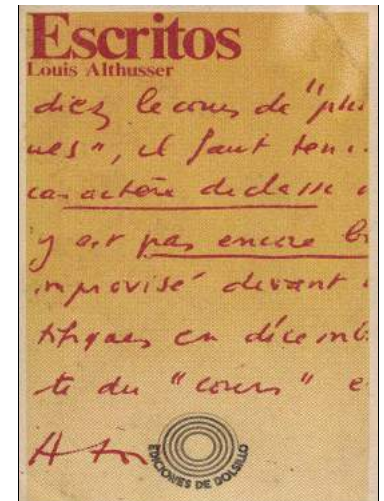 Escritos
Louis Althusser
diez le cours de "phi
ues", il faut ten
caractère de classe
y est pas encore b
improvisé devant
tifiques en décemb
te du "cours" e
EDICIONES DE BOLSILLO